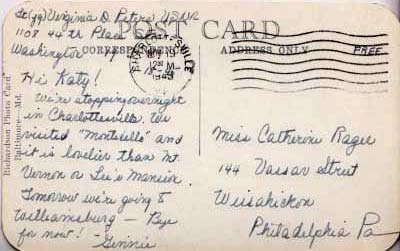 Lt(jg) Virginia D. Peters USNR
1108 44th Place
Washington
POST CARD
CORRESPONDENCE
ADDRESS ONLY
FREE
Hi Katy!
We're stopping overnight
in Charlottesville. We
visited "Monticello" and
it is lovelier than Mt.
Vernon or Lee's Mansion.
Tomorrow we're going to
Williamsburg — Bye
for now! - Ginnie
Miss Catherine Rager
144 Vassar Street
Wissahickon
Philadelphia Pa
Richardson Photo Card
Baltimore—Md.